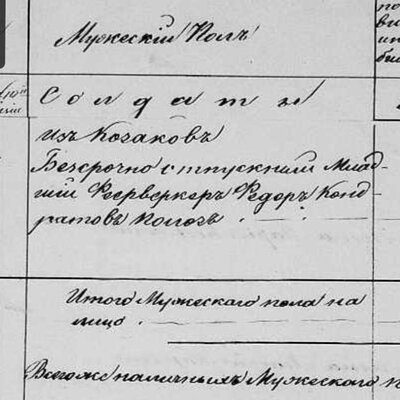 Мужескій Полъ
Солдаты
изъ Козаковъ
Безсрочно отпускный Млад-
шій Феерверкеръ Федоръ Конд-
ратовъ Колозъ
Итого Мужескаго пола на
лицо
Всего же наличныхъ Мужескаго п